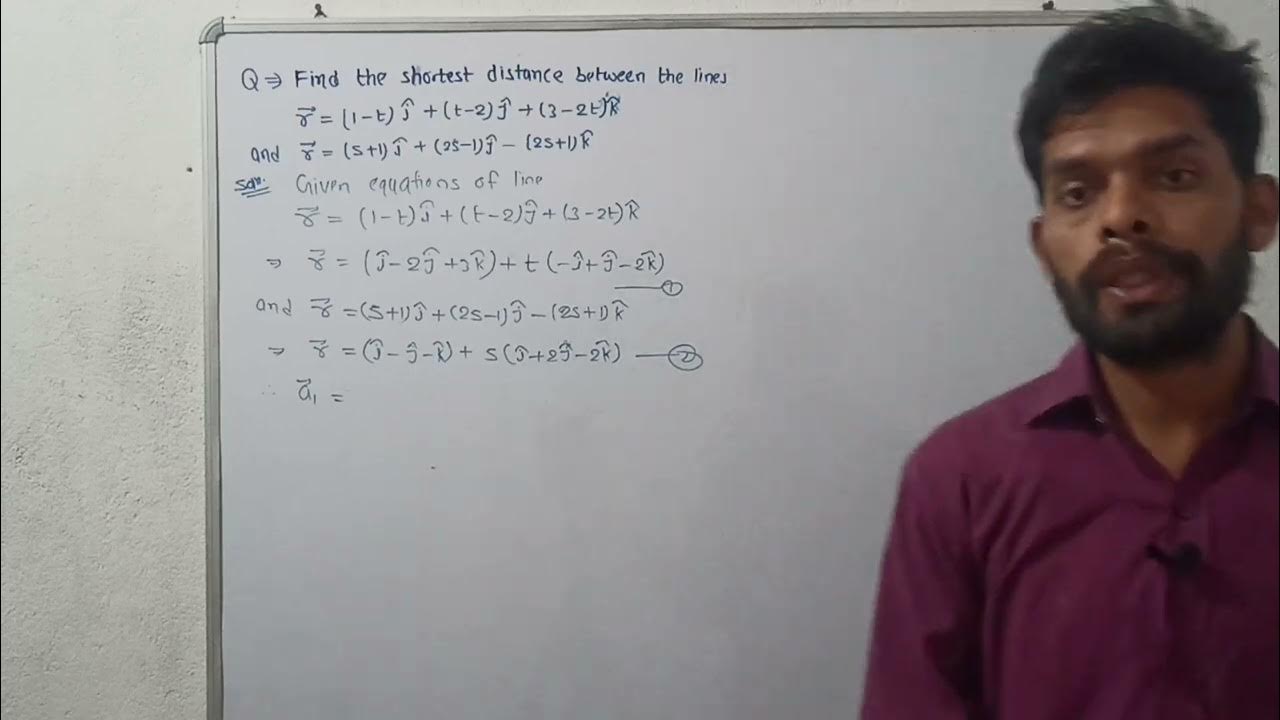 Q ⇒ Find the shortest distance between the lines
r⃗ = (1-t) ĵ + (t-2) ĵ + (3-2t) k̂
and r⃗ = (s+1) ĵ + (2s-1) ĵ - (2s+1) k̂
Soln. Given equations of line
r⃗ = (1-t) ĵ + (t-2) ĵ + (3-2t) k̂
⇒ r⃗ = (ĵ - 2ĵ + 3k̂) + t (-ĵ + ĵ - 2k̂)
—①
and r⃗ = (s+1) ĵ + (2s-1) ĵ - (2s+1) k̂
⇒ r⃗ = (ĵ - ĵ - k̂) + s (ĵ + 2ĵ - 2k̂) —②
∴ a⃗₁ =